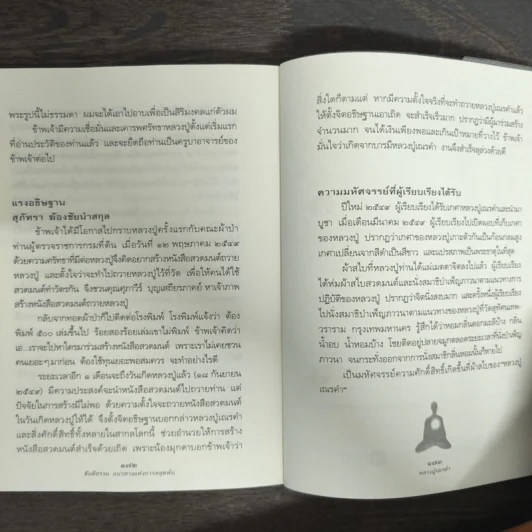 พระรูปนี้ไม่ธรรมดา ผมจะได้เอาไปอาบเพื่อเป็นสิริมงคลแก่ตัวผม
ข้าพเจ้ามีความเชื่อมั่นและเคารพศรัทธาหลวงปู่ตั้งแต่เริ่มแรก
ที่อ่านประวัติของท่านแล้ว และจะยึดถือท่านเป็นครูบาอาจารย์ของ
ข้าพเจ้าต่อไป
แรงอธิษฐาน
สุภัทรา ฆ้องชัยนำสกุล
ข้าพเจ้าได้มีโอกาสไปกราบหลวงปู่ครั้งแรกกับคณะผ้าป่า
ท่านผู้ตรวจราชการกรมที่ดิน เมื่อวันที่ ๑๒ พฤษภาคม ๒๕๔๙
ด้วยความศรัทธาที่มีต่อหลวงปู่จึงคิดอยากสร้างหนังสือสวดมนต์ถวาย
หลวงปู่ และตั้งใจว่าจะทำไปถวายหลวงปู่ไว้ที่วัด เพื่อให้คนได้ใช้
สวดมนต์ทำวัตรกัน จึงชวนคุณศุภาวีร์ บุญเสถียรภาคย์ หาเจ้าภาพ
สร้างหนังสือสวดมนต์ถวายหลวงปู่
กลับจากทอดผ้าป่าก็ไปติดต่อโรงพิมพ์ โรงพิมพ์แจ้งว่า ต้อง
พิมพ์ ๕๐๐ เล่มขึ้นไป ร้อยสองร้อยเล่มเขาไม่พิมพ์ ข้าพเจ้าคิดว่า
เอ...เราจะไปหาใครมาร่วมสร้างหนังสือสวดมนต์ เพราะเราไม่เคยชวน
คนเยอะๆ มาก่อน ต้องใช้ทุนเยอะพอสมควร จะทำอย่างไรดี
ระยะเวลาอีก ๑ เดือนจะถึงวันเกิดหลวงปู่แล้ว (๑๘ กันยายน
๒๕๔๙) มีความประสงค์จะนำหนังสือสวดมนต์ไปถวายท่าน แต่
ปัจจัยในการสร้างมีไม่พอ ด้วยความตั้งใจจะถวายหนังสือสวดมนต์
ในวันเกิดหลวงปู่ให้ได้ จึงตั้งจิตอธิษฐานบอกกล่าวหลวงปู่เณรคำ
และสิ่งศักดิ์สิทธิ์ทั้งหลายในสากลโลกนี้ ช่วยอำนวยให้การสร้าง
หนังสือสวดมนต์สำเร็จด้วยเถิด เพราะน้องมุกดาบอกข้าพเจ้าว่า
๑๗๒
สันติธรรม แนวทางแห่งการหลุดพ้น
สิ่งใดก็ตามแต่ หากมีความตั้งใจจริงที่จะทำถวายหลวงปู่เณรคำแล้ว
ให้ตั้งจิตอธิษฐานเอาเถิด จะสำเร็จเร็วมาก ปรากฏว่ามีผู้มาร่วมสร้าง
จำนวนมาก จนได้เงินเพียงพอและเกินเป้าหมายที่วางไว้ ข้าพเจ้า
มั่นใจว่าเกิดจากบารมีหลวงปู่เณรคำ งานจึงสำเร็จลุล่วงด้วยดี
ความมหัศจรรย์ที่ผู้เรียบเรียงได้รับ
ปีใหม่ ๒๕๔๙ ผู้เรียบเรียงได้รับเกศาหลวงปู่เณรคำและนำมา
บูชา เมื่อเดือนมีนาคม ๒๕๔๙ ผู้เรียบเรียงไปเปิดผอบที่เก็บเกศา
ของหลวงปู่ ปรากฏว่าเกศาของหลวงปู่เกาะตัวกันเป็นก้อนกลมสูง
เกศาเปลี่ยนจากสีดำเป็นสีขาว และแปรสภาพเป็นพระธาตุในที่สุด
ผ้าสไบที่หลวงปู่ท่านได้แผ่เมตตาจิตลงไปแล้ว ผู้เรียบเรียง
ได้ห่มผ้าสไบสวดมนต์และนั่งสมาธิบำเพ็ญภาวนาตามแนวทางการ
ปฏิบัติของหลวงปู่ ปรากฏว่าจิตนิ่งสงบมาก และครั้งหนึ่งผู้เรียบเรียง
ไปนั่งสมาธิบำเพ็ญภาวนาตามแนวทางของหลวงปู่ที่วัดสุทัศนเทพ
วราราม กรุงเทพมหานคร รู้สึกได้ว่าหอมกลิ่นดอกมะลิบ้าง กลิ่น
น้ำอบ น้ำหอมบ้าง โชยติดอยู่ปลายจมูกตลอดระยะเวลาที่นั่งบำเพ็ญ
ภาวนา จนกระทั่งออกจากการนั่งสมาธิกลิ่นหอมนั้นก็หายไป
เป็นมหัศจรรย์ความศักดิ์สิทธิ์เกิดขึ้นที่ผ้าสไบของ"หลวงปู่
เณรคำ"
๑๗๓
หลวงปู่เณรคำ